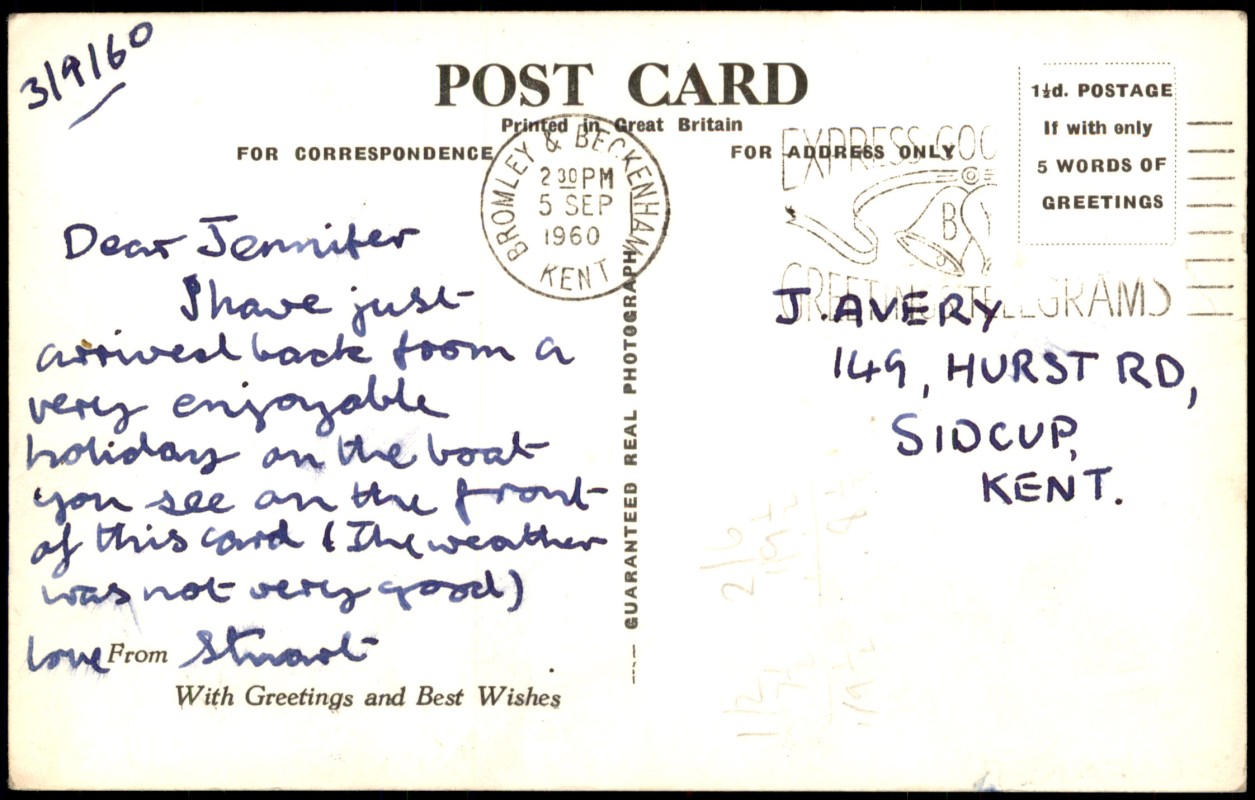 3/9/60
POST CARD
Printed in Great Britain
FOR CORRESPONDENCE
FOR ADDRESS ONLY
1½d. POSTAGE
If with only
5 WORDS OF
GREETINGS
BROMLEY & BECKENHAM
2 30 PM
5 SEP
1960
KENT
EXPRESS GOO
BY
GREETINGS TELEGRAMS
Dear Jennifer
I have just
arrived back from a
very enjoyable
holiday on the boat
you see on the front
of this card (The weather
was not very good)
love From Stuart
With Greetings and Best Wishes
GUARANTEED REAL PHOTOGRAPH
J. AVERY
149, HURST RD,
SIDCUP,
KENT.